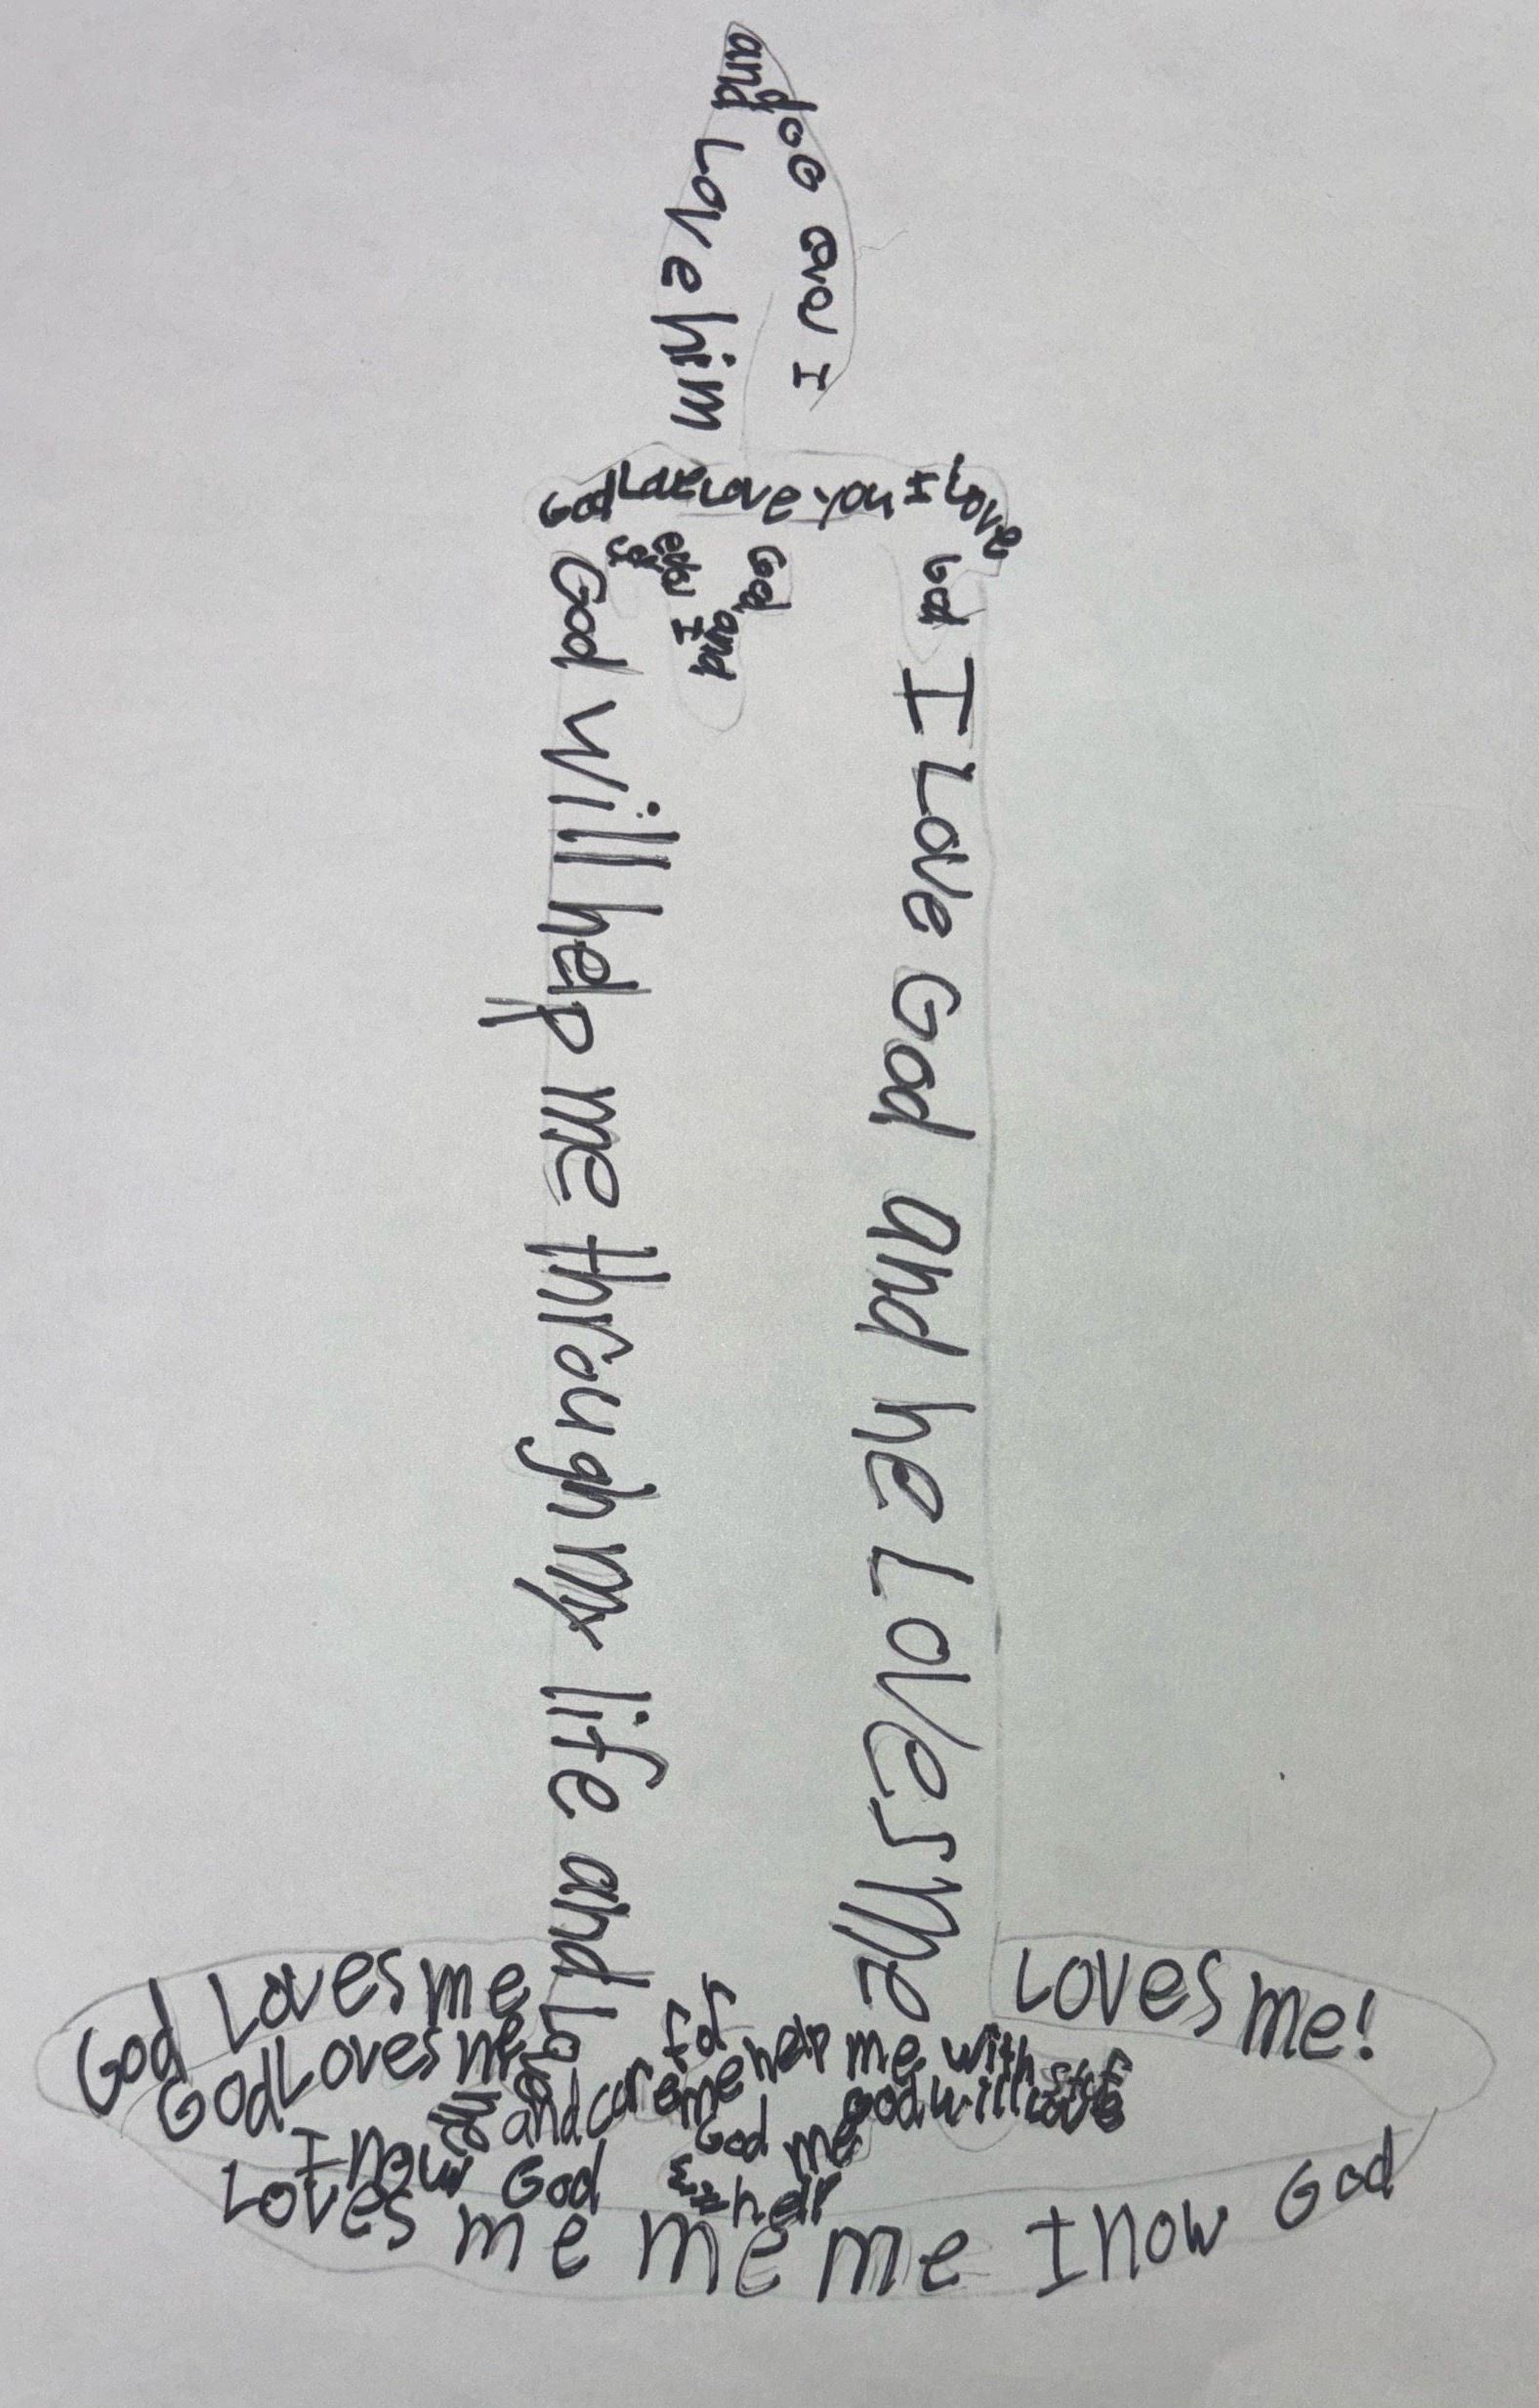 I love God
and Love him
God Love Love you I Love
God
I Love God and he Loves Me
God and
I love
God will help me through my life and Love
God Loves me
God Loves me
Loves me!
for
me help me with
and care
god will
God me
I now God
help
Loves me me me I now God